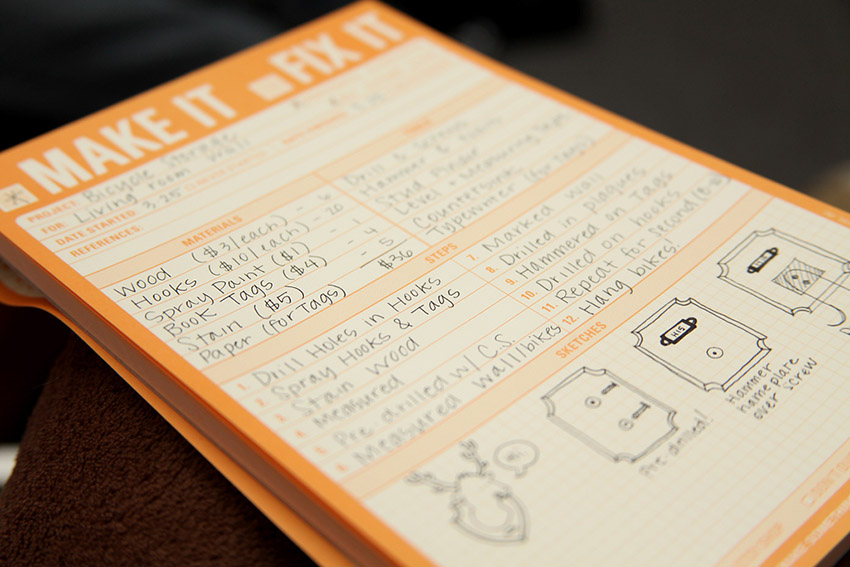 MAKE IT FIX IT
PROJECT: Bicycle Storage
FOR: Living room wall
DATE STARTED: 3.25
REFERENCES:
MATERIALS
Wood ($3/each) - 6
Hooks ($10/each) - 20
Spray Paint ($1) - 1
Book Tags ($4) - 4
Stain ($5) - 5
Paper (for Tags) $36
Drill &
Hammer &
Stud Finder
Level + Measuring Tape
Countersink
Typewriter (for Tags)
STEPS
1. Drill Holes in Hooks
2. Spray Hooks & Tags
3. Stain Wood
4. Measured
5. Pre drilled w/ C.S.
6. Measured wall/bikes
7. Marked wall
8. Drilled in plaques
9. Hammered on Tags
10. Drilled on hooks
11. Repeat for second
12. Hang bikes.
SKETCHES
Hi!
Pre drilled!
HIS
Hammer
nameplate
over screw